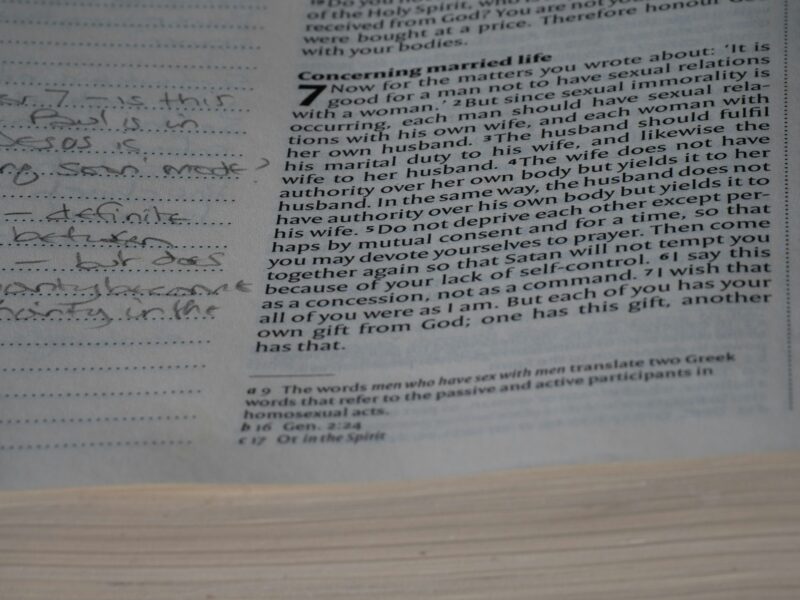 er 7 – is this
– Paul is in
Jesus is
ng 'semi' made?
– definite
between
– but does
in the
of the Holy Spirit, who is
received from God? You are not you
were bought at a price. Therefore honour
with your bodies.
Concerning married life
7 Now for the matters you wrote about: 'It is
good for a man not to have sexual relations
with a woman.' 2 But since sexual immorality is
occurring, each man should have sexual rela-
tions with his own wife, and each woman with
her own husband. 3 The husband should fulfil
his marital duty to his wife, and likewise the
wife to her husband. 4 The wife does not have
authority over her own body but yields it to her
husband. In the same way, the husband does not
have authority over his own body but yields it to
his wife. 5 Do not deprive each other except per-
haps by mutual consent and for a time, so that
you may devote yourselves to prayer. Then come
together again so that Satan will not tempt you
because of your lack of self-control. 6 I say this
as a concession, not as a command. 7 I wish that
all of you were as I am. But each of you has your
own gift from God; one has this gift, another
has that.
a 9 The words men who have sex with men translate two Greek
words that refer to the passive and active participants in
homosexual acts.
b 16 Gen. 2:24
c 17 Or in the Spirit